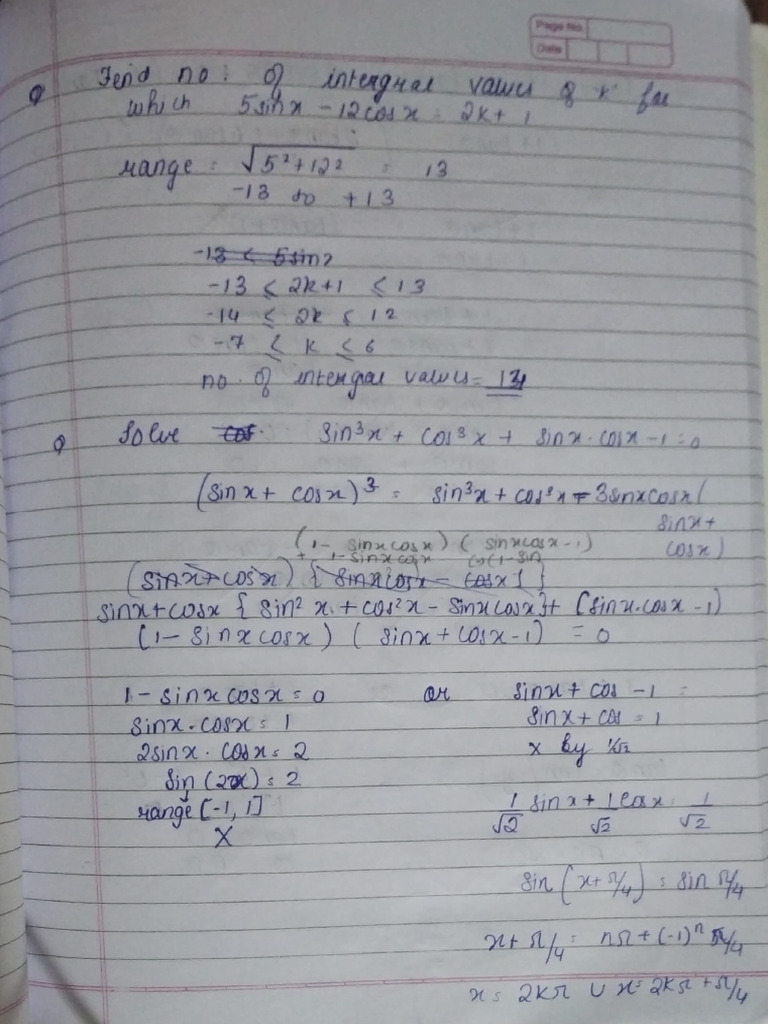 Page No.
Date
Q Find no. of intergral values of k for
which 5sinx - 12cosx = 2k + 1
range = √5² + 12² = 13
-13 to +13
-13 ≤ 5sin
-13 ≤ 2k+1 ≤ 13
-14 ≤ 2k ≤ 12
-7 ≤ k ≤ 6
no. of intergral values = 14
Q Solve cos. sin³x + cos³x + sinx·cosx - 1 = 0
(sinx + cosx)³ = sin³x + cos³x - 3sinxcosx (
sinx +
cosx)
(1 - sinxcosx) ( sinxcosx - 1)
+ 1 - sinxcosx (-)(1 - sin
(sinx + cosx) { sinxcosx - cosx } }
sinx + cosx { sin²x + cos²x - sinxcosx} + (sinx·cosx - 1)
(1 - sinxcosx) ( sinx + cosx - 1) = 0
1 - sinxcosx = 0 or sinx + cos - 1 =
sinx·cosx = 1 sinx + cos = 1
2sinx·cosx = 2 x by 1/√2
sin (2x) = 2
range [-1, 1] 1/√2 sinx + 1/√2 cosx = 1/√2
X
sin (x + π/4) = sin π/4
x + π/4 = nπ + (-1)ⁿ π/4
x = 2kπ ∪ x = 2kπ + π/4